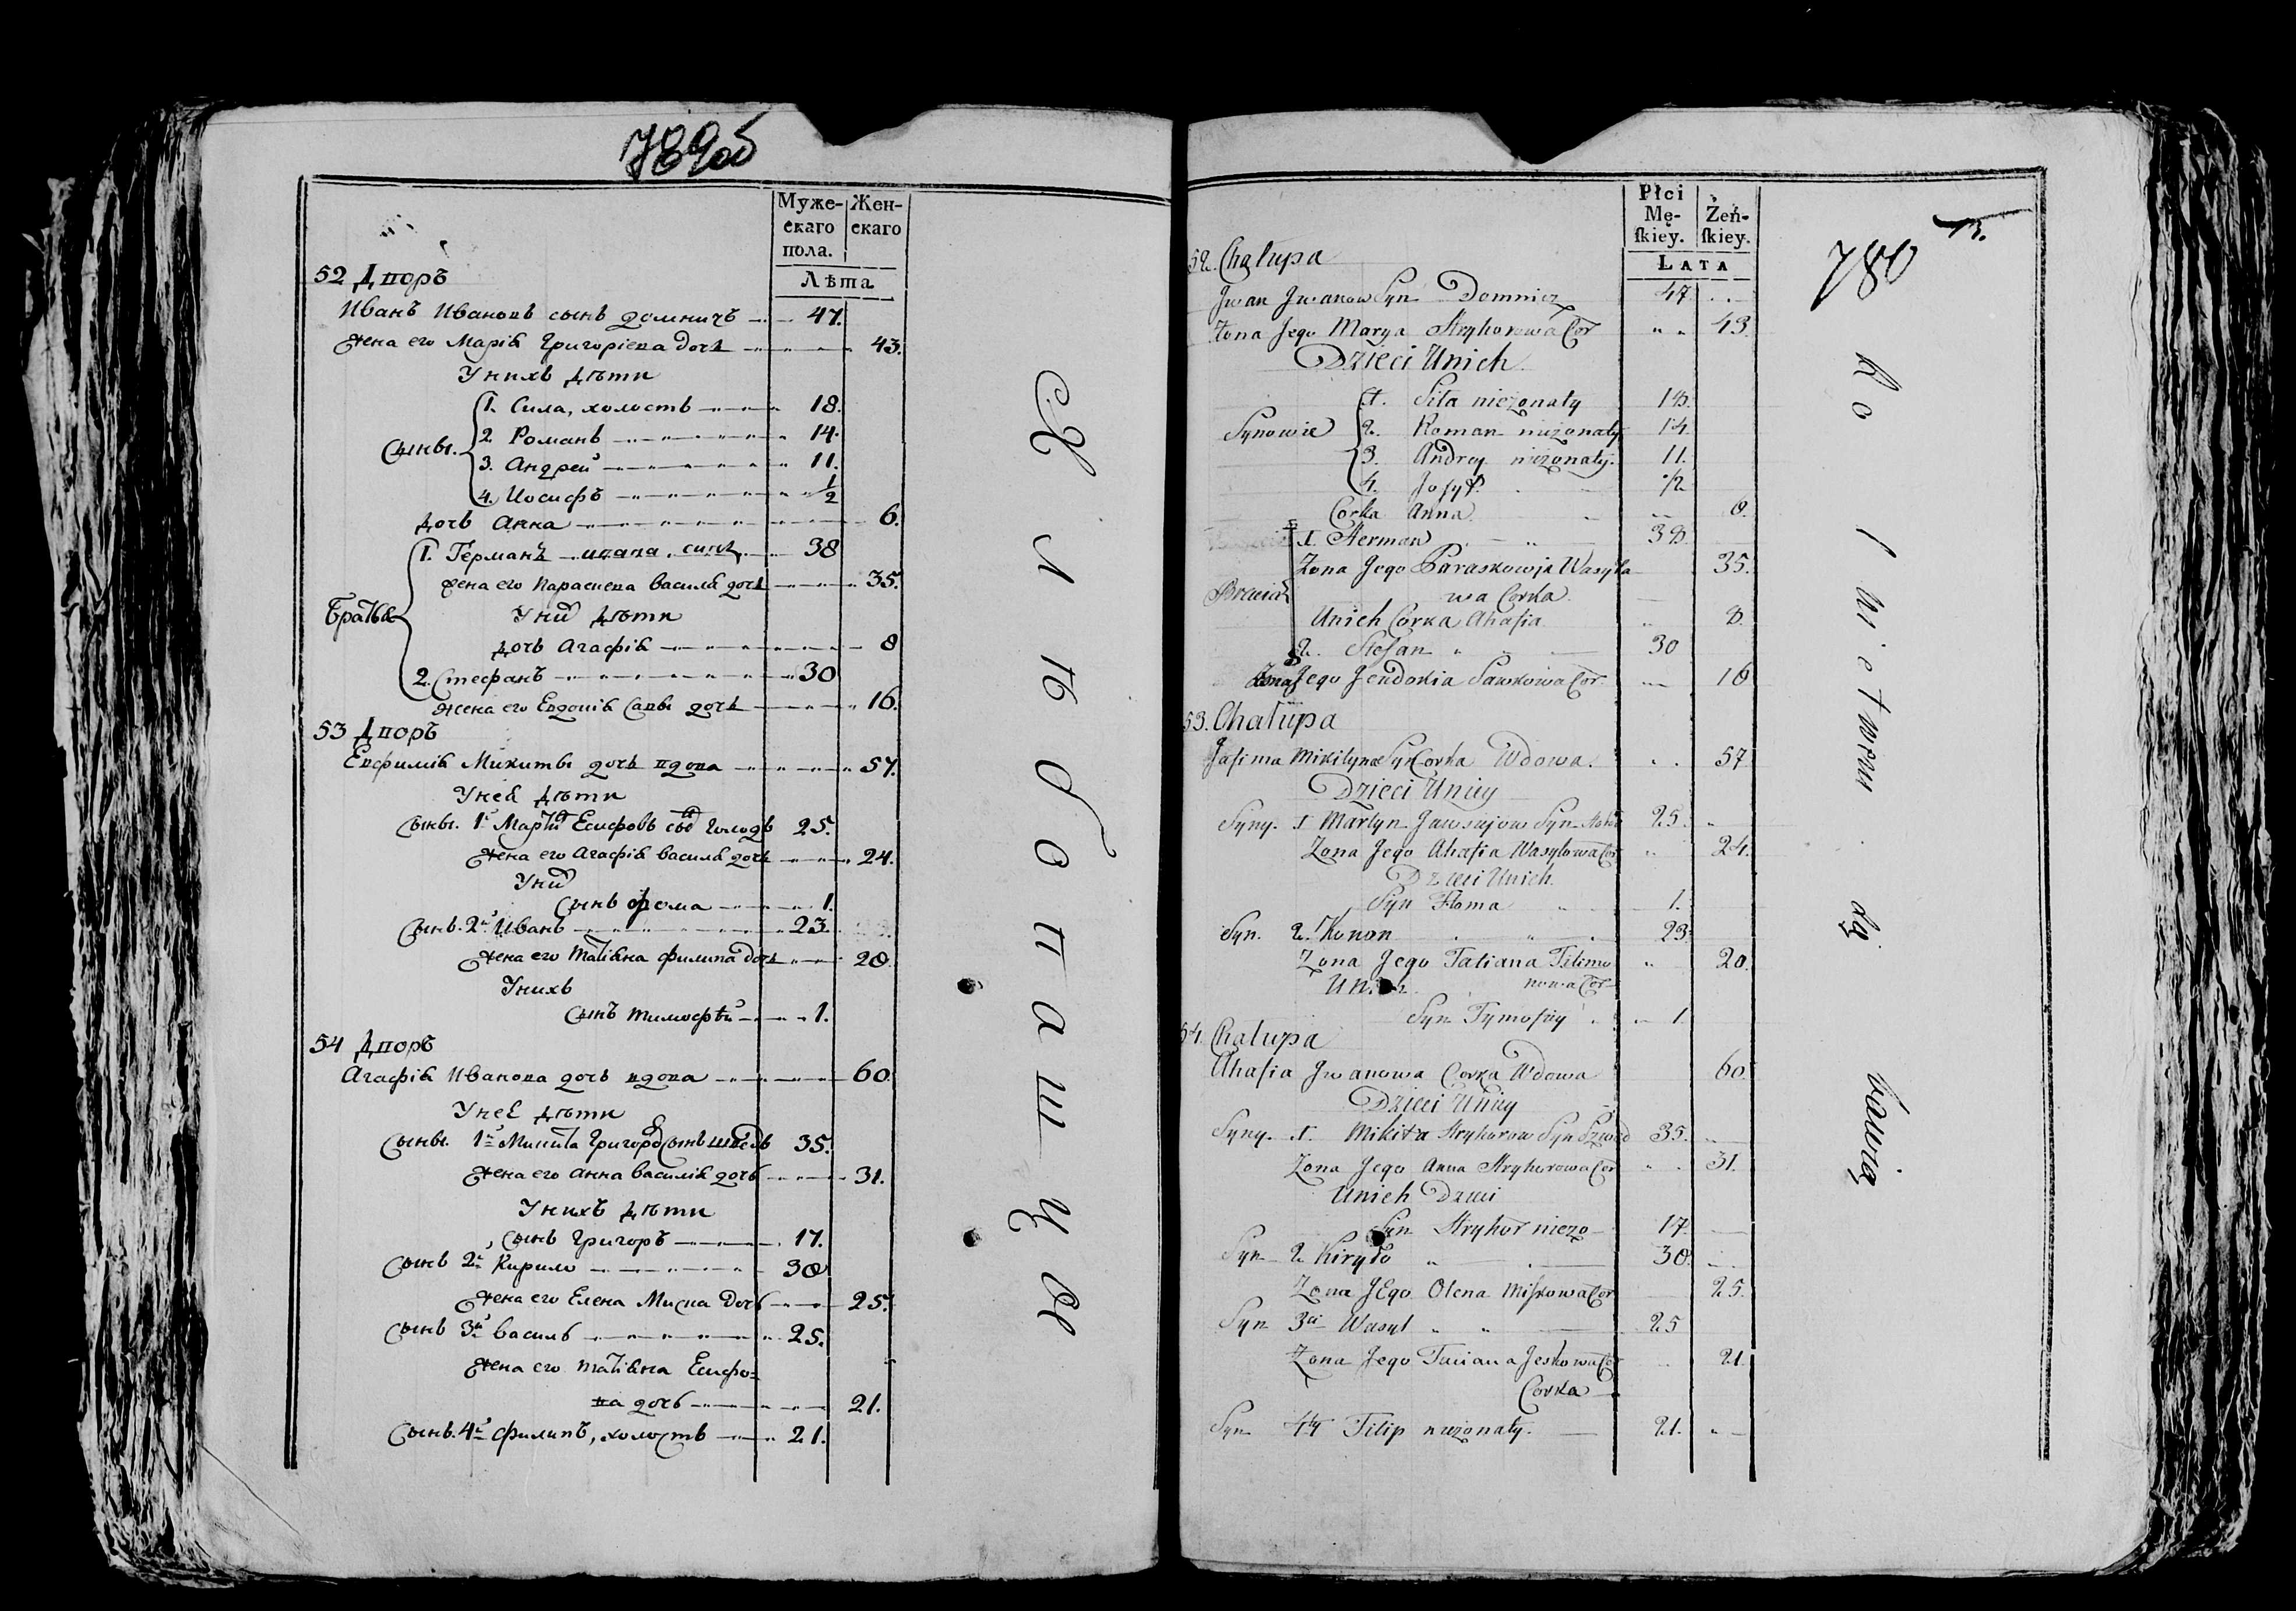 789об
Муже-
скаго
пола.
Жен-
скаго
Лѣта
52 Дворъ
Иванъ Ивановъ сынъ Домничъ 47.
Жена его Марія Григоріева дочь 43.
У нихъ дѣти
Сыны. 1. Сила, холостъ 18.
2. Романъ 14.
3. Андрей 11.
4. Иосифъ 1/2
Дочь Анна 6.
Братья 1. Германъ 38
Жена его Параскева Василія дочь 35.
У них дѣти
Дочь Агафія 8
2. Стефанъ 30
Жена его Евдокія Савы дочь 16.
53 Дворъ
Евфимія Микиты дочь вдова 57.
У ней дѣти
Сыны. 1й Мартин Есифовъ сын Голодъ 25.
Жена его Агафія Василія дочь 24.
У них
Сынъ Фома 1.
Сынъ. 2й Иванъ 23
Жена его Татіана Филипа дочь 20.
У нихъ
Сынъ Тимофѣй 1.
54 Дворъ
Агафія Иванова дочь вдова 60.
У ней дѣти
Сыны. 1й Микита Григоров сынъ Шведъ 35.
Жена его Анна Василія дочь 31.
У нихъ дѣти
Сынъ Григоръ 17.
Сынъ 2й Кирило 30
Жена его Елена Миска дочь 25.
Сынъ 3й Василь 25.
Жена его Татіана Есифо=
ва дочь 21.
Сынъ. 4й Филипъ, холостъ 21.
Х л ѣ б о п а ш ц ы
Płci
Mę-
ſkiey.
Żeń-
ſkiey.
LATA
780
52. Chałupa
Jwan Jwanow Syn Domnicz 47.
Zona Jego Marya Hryhorowa Cor 43
Dzieci Unich
Synowie 1. Siła niezonaty 18.
2. Roman niezonaty 14
3. Andrey niezonaty. 11.
4. Josyf. 1/2
Corka Anna 6.
Bracia 1. Herman 38.
Zona Jego Paraskowja Wasyla 35.
wa Corka
Unich Corka Ahafia 8.
2. Stefan 30
Zona Jego Jendokia Sawkowa Cor. 16
53. Chałupa
Jafima Mikityna Syn Corka Wdowa. 57
Dzieci Uniey
Syny. 1 Martyn Syn 25.
Zona Jego Ahafia Wasylowa Cor 24.
Dzieci Unich.
Syn Homa 1.
Syn. 2. Konon 23.
Zona Jego Tatiana Filimo 20.
Unich nowa Cor
Syn Tymofiey 1.
54. Chałupa
Ahafia Jwanowa Corka Wdowa 60.
Dzieci Uniey
Syny. 1. Mikita Hryhorow Syn Szwed 35.
Zona Jego Anna Hryhorowa Cor 31.
Unich Dzieci
Syn Hryhor niezo 17.
Syn 2 Kiryło 30.
Zona JEgo Olena Miskowa Cor 25.
Syn 3ci Wasyl 25
Zona Jego Taciana Jeskowa Cor 21
Corka
Syn 4ty Filip niezonaty. 21.